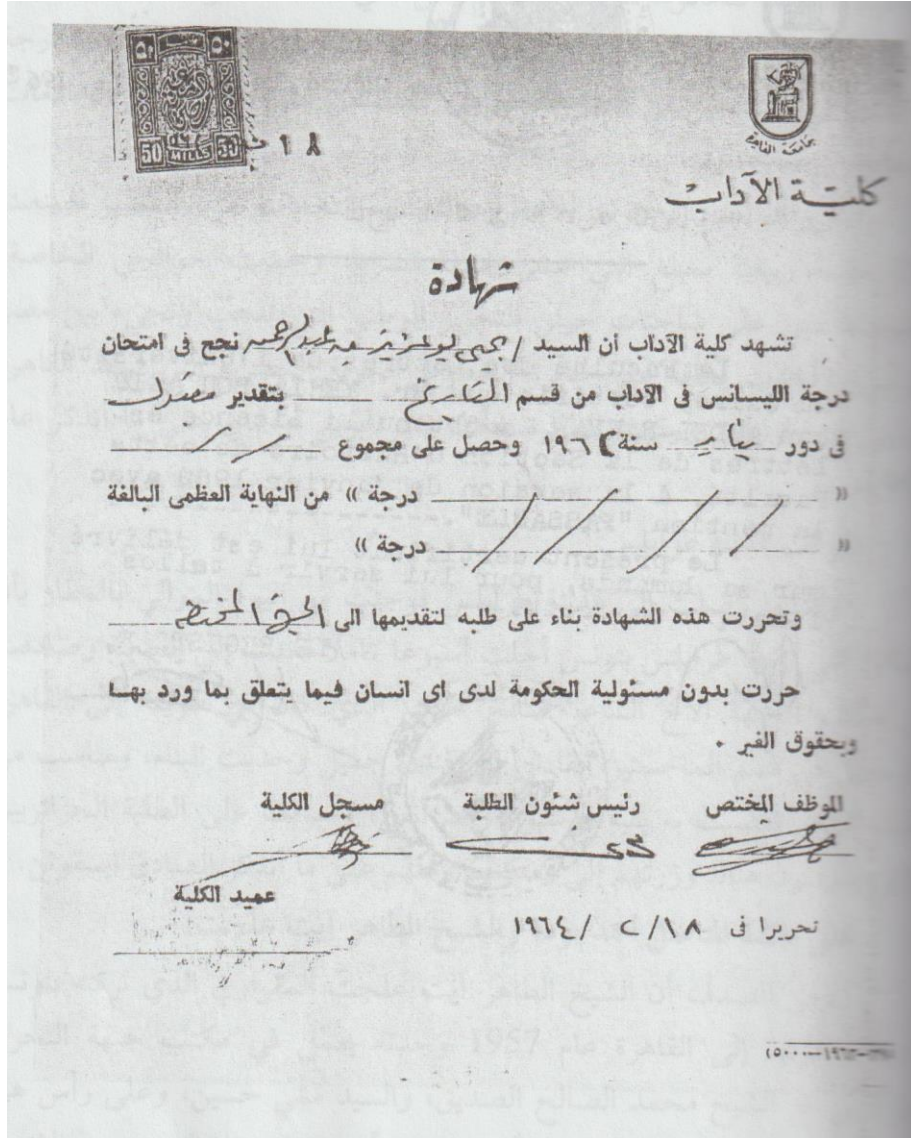 ٥٠ ٥٠
50 MILLS 50
١٨
جامعة القاهرة
كليـة الآداب
شهادة
تشهد كلية الآداب أن السيد / يحيى بوعزيز بن عبد الرحمن نجح فى امتحان
درجة الليسانس فى الآداب من قسم التاريخ بتقدير مقبول
فى دور يناير سنة ١٩٦٢ وحصل على مجموع
« درجة » من النهاية العظمى البالغة
« درجة »
وتحررت هذه الشهادة بناء على طلبه لتقديمها الى الجهة المختصة
حررت بدون مسئولية الحكومة لدى اى انسان فيما يتعلق بما ورد بهـا
وبحقوق الغير ٠
الموظف المختص رئيس شئون الطلبة مسجل الكلية
عميد الكلية
تحريرا فى ١٨/ ٢ /١٩٦٤